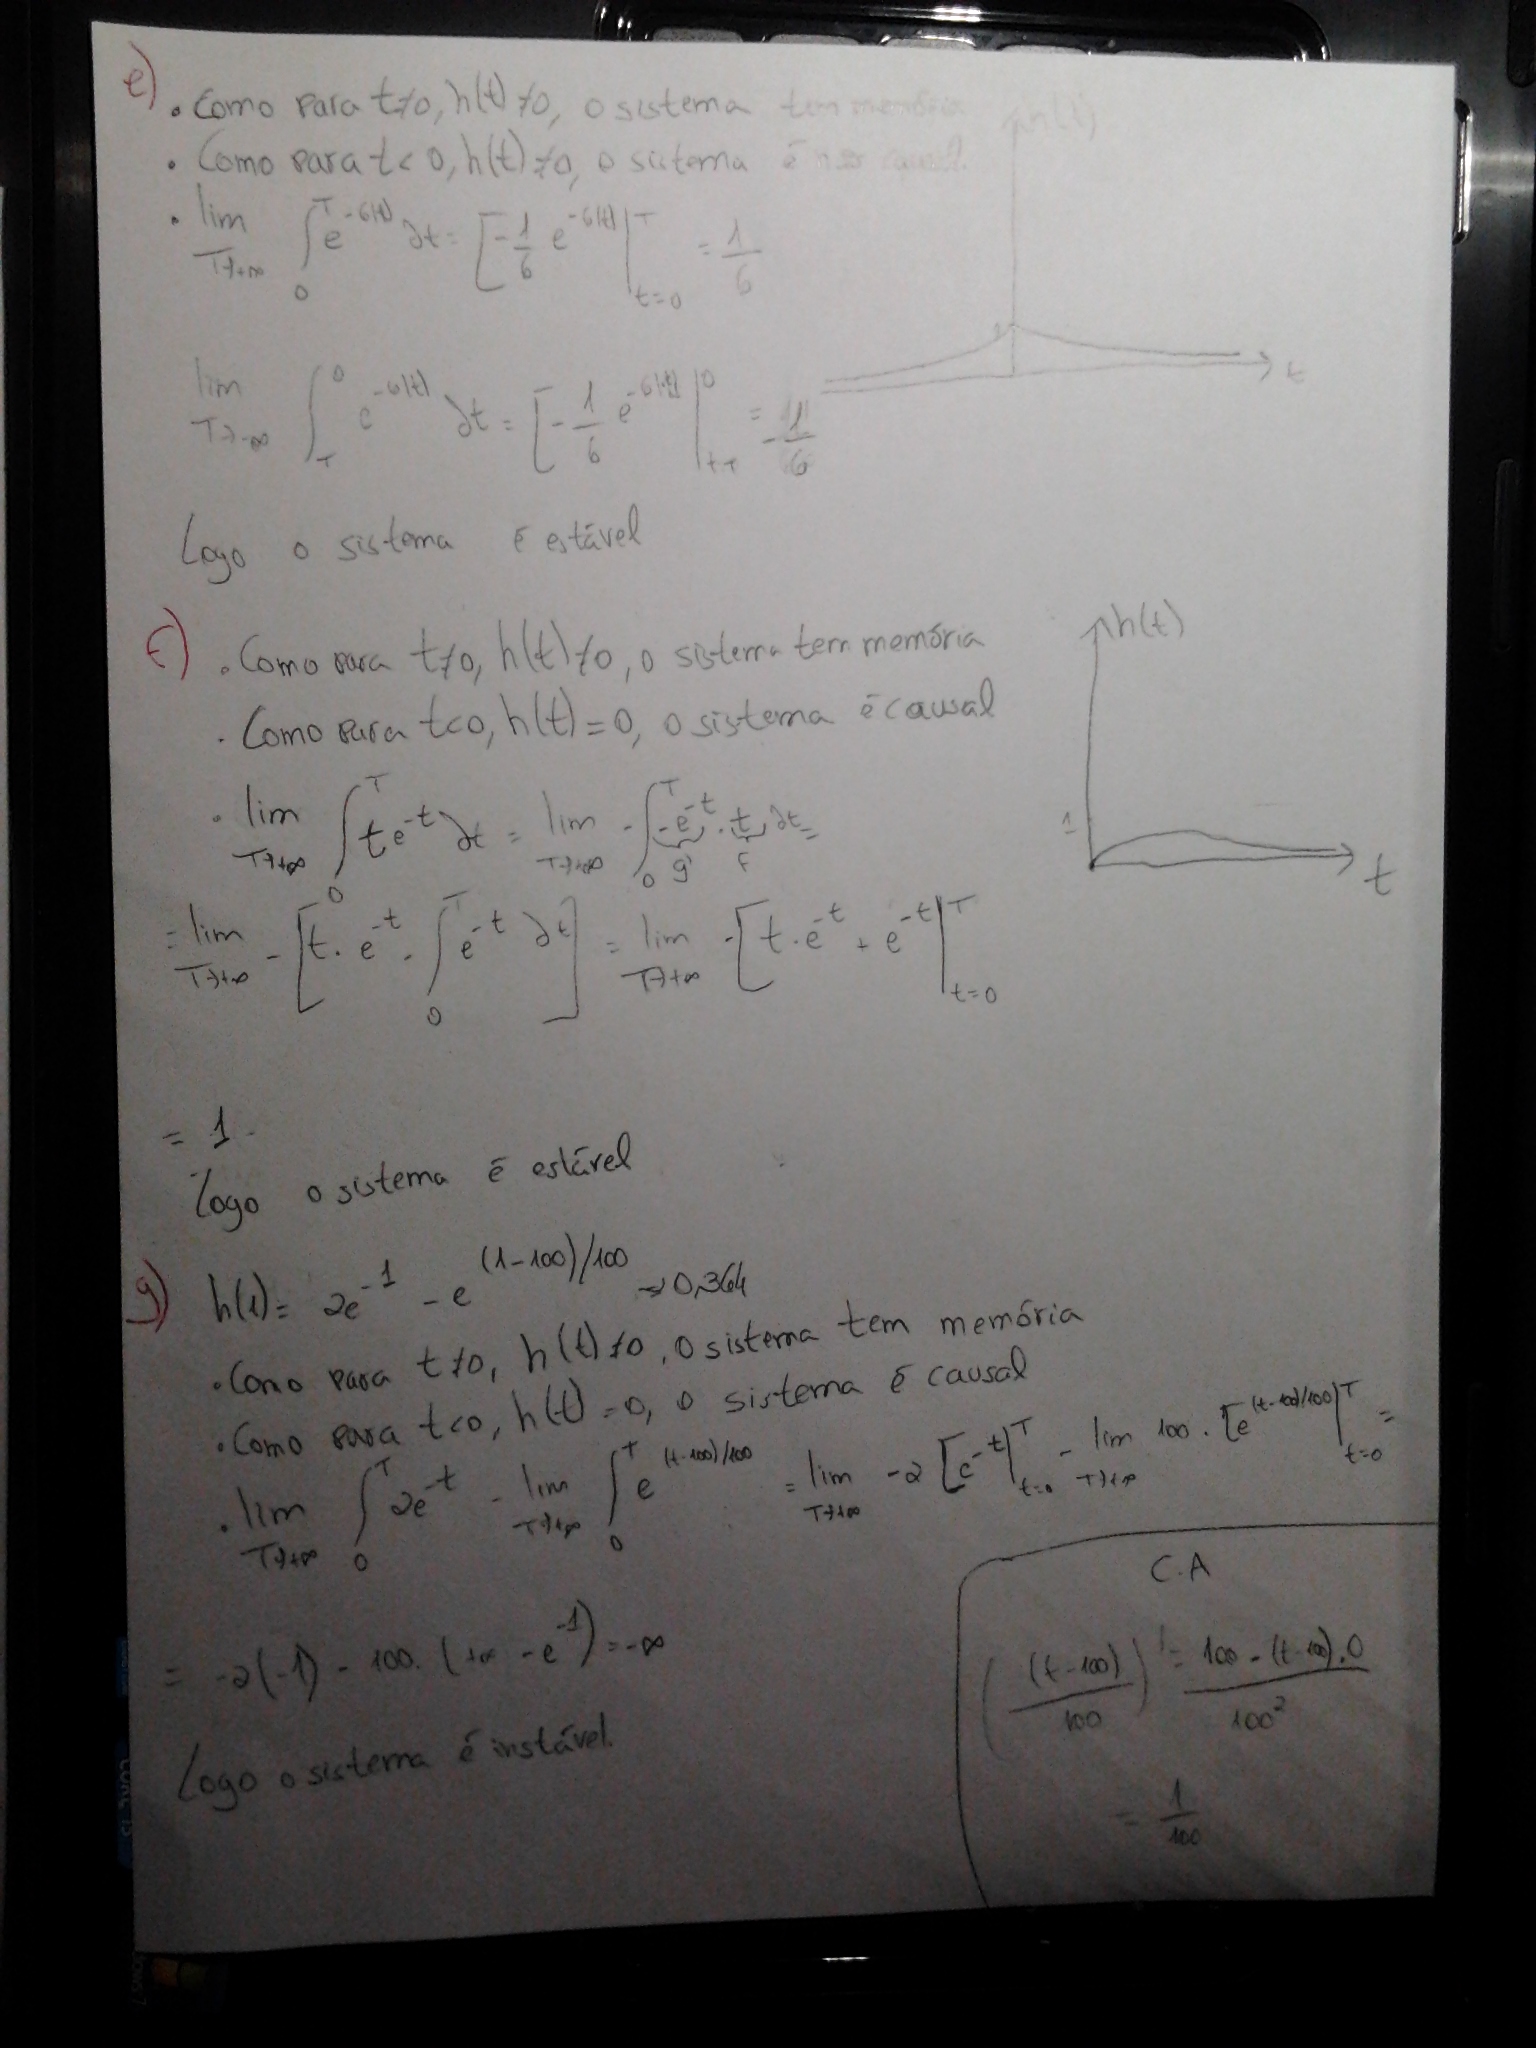 e) . Como para t≠0, h(t)≠0, o sistema tem memória
. Como para t<0, h(t)≠0, o sistema é não causal.
h(t)
. lim T→+∞ ∫₀ᵀ e^-6|t| ∂t = [-1/6 e^-6|t| |ᵀ t=0 = 1/6
t
lim T→-∞ ∫_T^0 e^-6|t| ∂t = [-1/6 e^-6|t| |⁰ t=T = -1/6
Logo o sistema é estável
f) . Como para t≠0, h(t)≠0, o sistema tem memória
h(t)
. Como para t<0, h(t)=0, o sistema é causal
. lim T→+∞ ∫₀ᵀ te^-t ∂t = lim T→+∞ -∫₀ᵀ -e^-t . t ∂t =
g' f
1
t
= lim T→+∞ -[t.e^-t - ∫₀ᵀ e^-t ∂t] = lim T→+∞ -[t.e^-t + e^-t |ᵀ t=0
= 1.
Logo o sistema é estável
g) h(1)= 2e^-1 - e^(1-100)/100 → 0,364
. Como para t≠0, h(t)≠0, o sistema tem memória
. Como para t<0, h(t)=0, o sistema é causal
. lim T→+∞ ∫₀ᵀ 2e^-t - lim T→+∞ ∫₀ᵀ e^(t-100)/100 = lim T→+∞ -2 [e^-t |ᵀ t=0 - lim T→+∞ 100 . [e^(t-100)/100 |ᵀ t=0 =
= -2(-1) - 100. (+∞ - e^-1) = -∞
Logo o sistema é instável.
C.A
((t-100)/100)' = (100 - (t-100).0)/100²
= 1/100